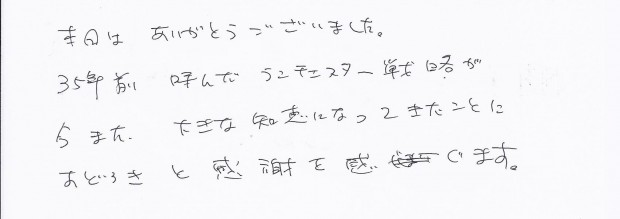 本日は ありがとうございました。
35年前 呼んだ ランチェスター戦略が
今また 大きな知恵になってきたことに
おどろきと感謝を感じます。